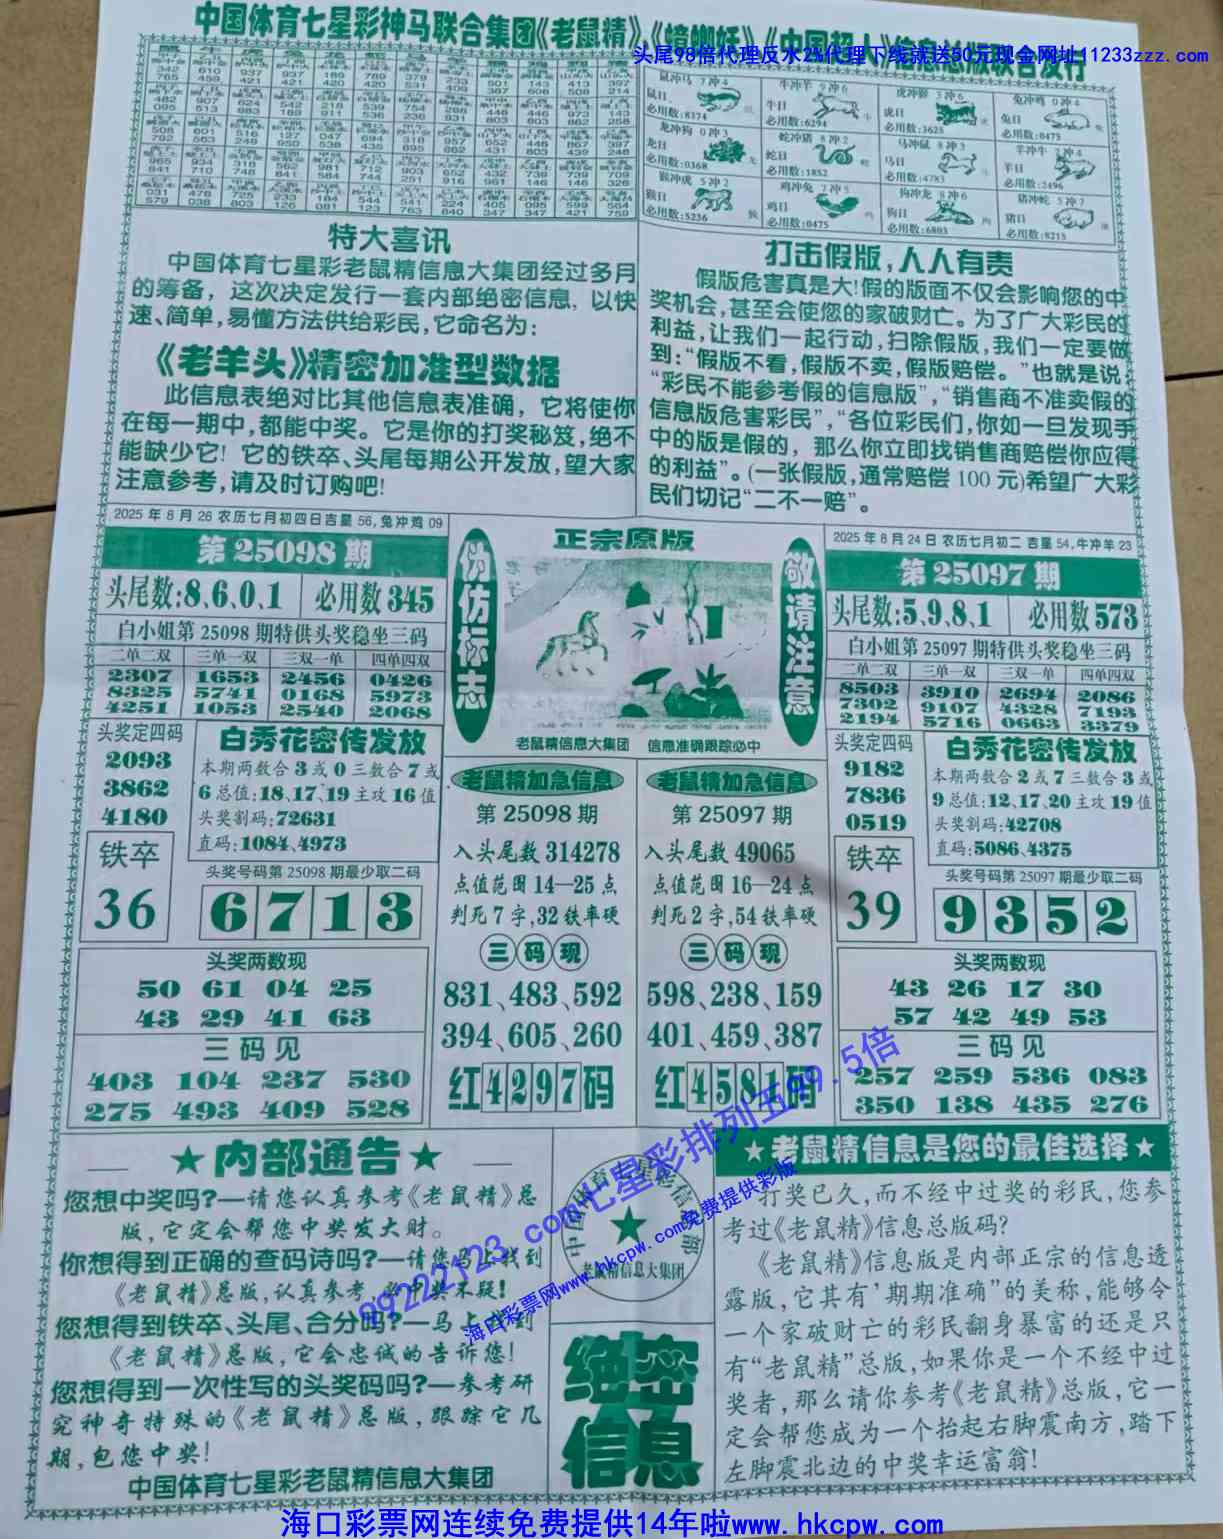 中国体育七星彩神马联合集团《老鼠精》、《蟑螂妖》《中国超人》信息总版联合发行
头尾98倍代理反水2%代理下线就送50元现金网址11233zzz.com
鼠冲马 7冲4
鼠日
必用数:8374
牛冲羊 9冲6
牛日
必用数:6294
虎日
必用数:3625
兔冲鸡 0冲4
兔日
必用数:0471
龙冲狗 0冲3
龙日
必用数:0368
蛇冲猪 8冲2
蛇日
必用数:1852
马冲鼠 8冲3
马日
必用数:4783
羊冲牛 2冲4
羊日
必用数:2496
猴冲虎 5冲2
猴日
必用数:5236
鸡冲兔 7冲5
鸡日
必用数:0475
狗冲龙 8冲6
狗日
必用数:6803
猪冲蛇 5冲7
猪日
必用数:8215
特大喜讯
中国体育七星彩老鼠精信息大集团经过多月
的筹备，这次决定发行一套内部绝密信息，以快
速、简单，易懂方法供给彩民，它命名为：
《老羊头》精密加准型数据
此信息表绝对比其他信息表准确，它将使你
在每一期中，都能中奖。它是你的打奖秘笈，绝不
能缺少它！它的铁卒、头尾每期公开发放，望大家
注意参考，请及时订购吧！
打击假版，人人有责
假版危害真是大！假的版面不仅会影响您的中
奖机会，甚至会使您的家破财亡。为了广大彩民的
利益，让我们一起行动，扫除假版，我们一定要做
到：“假版不看，假版不卖，假版赔偿。”也就是说，
“彩民不能参考假的信息版”，“销售商不准卖假的
信息版危害彩民”，“各位彩民们，你如一旦发现手
中的版是假的，那么你立即找销售商赔偿你应得
的利益”。(一张假版，通常赔偿100元)希望广大彩
民们切记“二不一赔”。
2025年8月26农历七月初四日吉星56,兔冲鸡09
第25098期
头尾数:8、6、0、1 必用数345
白小姐第25098期特供头奖稳坐三码
二单二双 三单一双 三双一单 四单四双
2307 1653 2456 0426
8325 5741 0168 5973
4251 1053 2540 2068
头奖定四码
2093
3862
4180
白秀花密传发放
本期两数合3或0三数合7或
6总值:18、17、19主攻16值
头奖割码:72631
直码:1084、4973
铁卒
36
头奖号码第25098期最少取二码
6713
头奖两数现
50 61 04 25
43 29 41 63
三码见
403 104 237 530
275 493 409 528
防仿标志
正宗原版
敬请注意
老鼠精信息大集团 信息准确跟踪必中
老鼠精加急信息
第25098期
入头尾数314278
点值范围14—25点
判死7字,32铁率硬
三码现
831、483、592
394、605、260
红4297码
老鼠精加急信息
第25097期
入头尾数49065
点值范围16—24点
判死2字,54铁率硬
三码现
598、238、159
401、459、387
红4581码
2025年8月24日农历七月初二 吉星54,牛冲羊23
第25097期
头尾数:5、9、8、1 必用数573
白小姐第25097期特供头奖稳坐三码
二单二双 三单一双 三双一单 四单四双
8503 3910 2694 2086
7302 9107 4328 7193
2194 5716 0663 3379
头奖定四码
9182
7836
0519
白秀花密传发放
本期两数合2或7三数合3或
9总值:12、17、20主攻19值
头奖割码:42708
直码:5086、4375
铁卒
39
头奖号码第25097期最少取二码
9352
头奖两数现
43 26 17 30
57 42 49 53
三码见
257 259 536 083
350 138 435 276
★内部通告★
您想中奖吗？—请您认真参考《老鼠精》总
版，它定会帮您中奖发大财。
你想得到正确的查码诗吗？—请您马上找到
《老鼠精》总版，认真参考，必中奖不疑！
您想得到铁卒、头尾、合分吗？—马上找到
《老鼠精》总版，它会忠诚的告诉您！
您想得到一次性写的头奖码吗？—参考研
究神奇特殊的《老鼠精》总版，跟踪它几
期，包您中奖！
中国体育七星彩老鼠精信息大集团
老鼠精信息大集团
绝密
信息
★老鼠精信息是您的最佳选择★
打奖已久，而不经中过奖的彩民，您参
考过《老鼠精》信息总版码？
《老鼠精》信息版是内部正宗的信息透
露版，它其有’期期准确”的美称，能够令
一个家破财亡的彩民翻身暴富的还是只
有“老鼠精”总版，如果你是一个不经中过
奖者，那么请你参考《老鼠精》总版，它一
定会帮您成为一个抬起右脚震南方，踏下
左脚震北边的中奖幸运富翁！
99222123.com七星彩排列五99.5倍
海口彩票网www.hkcpw.com免费提供彩版
海口彩票网连续免费提供14年啦www.hkcpw.com